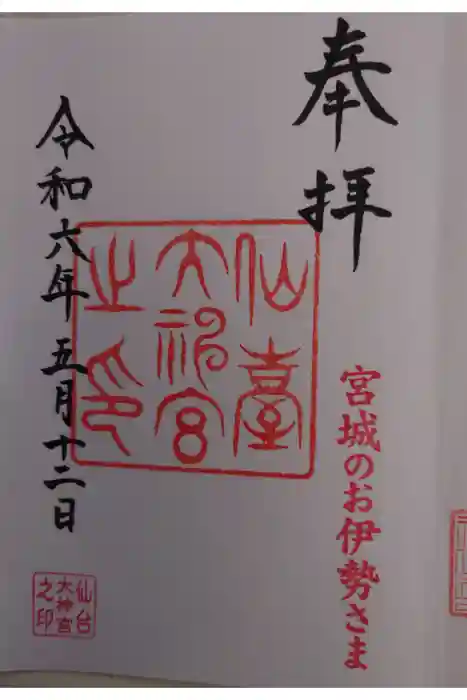 奉拝
宮城のお伊勢さま
仙臺
大神宮
之印
令和六年五月十二日
仙台
大神宮
之印